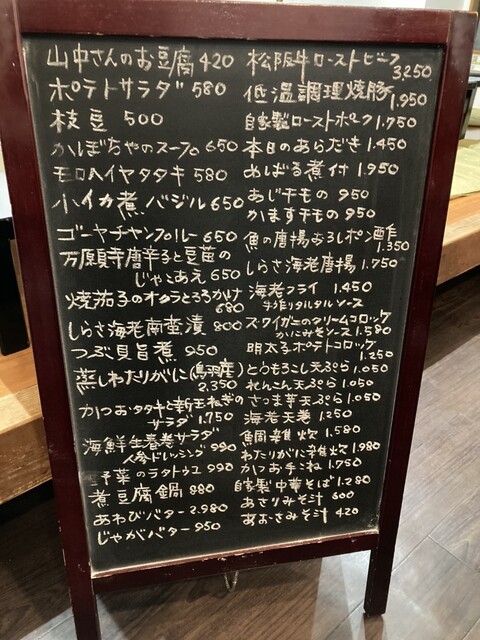 山中さんのお豆腐 420
ポテトサラダ 580
枝豆 500
かぼちゃのスープ 650
モロヘイヤタタキ 580
小イカ煮バジル 650
ゴーヤチャンプルー 650
万願寺唐辛子と豆苗の
じゃこあえ 650
焼茄子のオクラとろろかけ
680
しらさ海老南蛮漬 800
つぶ貝旨煮 950
蒸しわたりがに(鳥羽産)
2.350
かつおタタキと新玉ねぎの
サラダ 1.750
海鮮生春巻サラダ
人参ドレッシング 990
野菜のラタトゥユ 990
煮豆腐鍋 880
あわびバター 2.980
じゃがバター 950
松阪牛ローストビーフ
3250
低温調理焼豚
1.950
自家製ローストポーク 1.750
本日のあらだき 1.450
めばる煮付 1.950
あじ干もの 950
かます干もの 950
魚の唐揚おろしポン酢
1.350
しらさ海老唐揚 1.750
海老フライ 1.450
手作りタルタルソース
ズワイガニのクリームコロッケ
かにみそソース 1.580
明太子ポテトコロッケ
1.250
とうもろこし天ぷら 1.050
れんこん天ぷら 1.050
さつま芋天ぷら 1.050
海老天巻 1250
鯛雑炊 1.580
わたりがに雑炊 1.980
かつお手こね 1.750
自家製中華そば 1.280
あさりみそ汁 600
あおさみそ汁 420